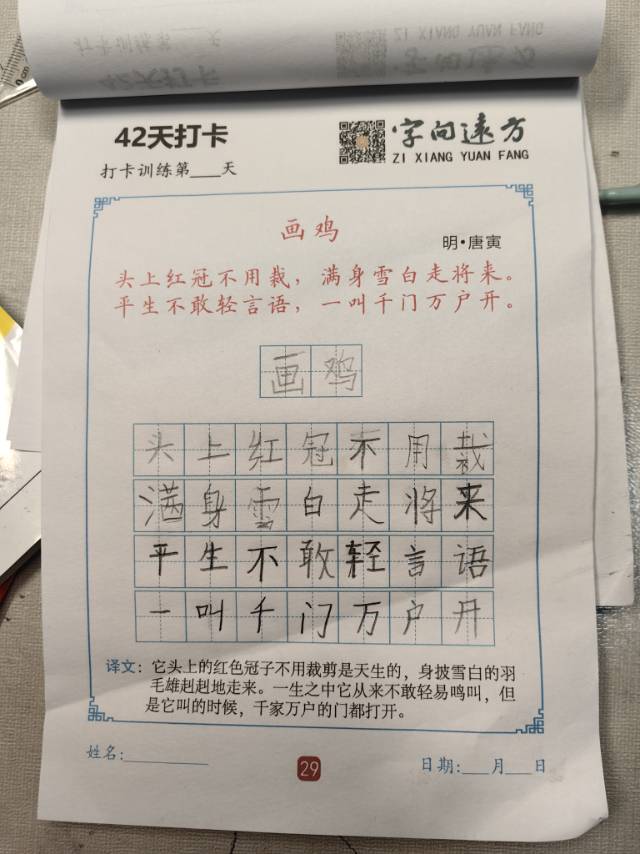 打卡训练第___天
ZI XIANG YUAN FANG
42天打卡
字向远方
42天打卡
字向远方
打卡训练第___天
ZI XIANG YUAN FANG
画鸡
明·唐寅
头上红冠不用裁，满身雪白走将来。
平生不敢轻言语，一叫千门万户开。
画鸡
头上红冠不用裁
满身雪白走将来
平生不敢轻言语
一叫千门万户开
译文：它头上的红色冠子不用裁剪是天生的，身披雪白的羽
毛雄赳赳地走来。一生之中它从来不敢轻易鸣叫，但
是它叫的时候，千家万户的门都打开。
姓名:________
29
日期:___月___日